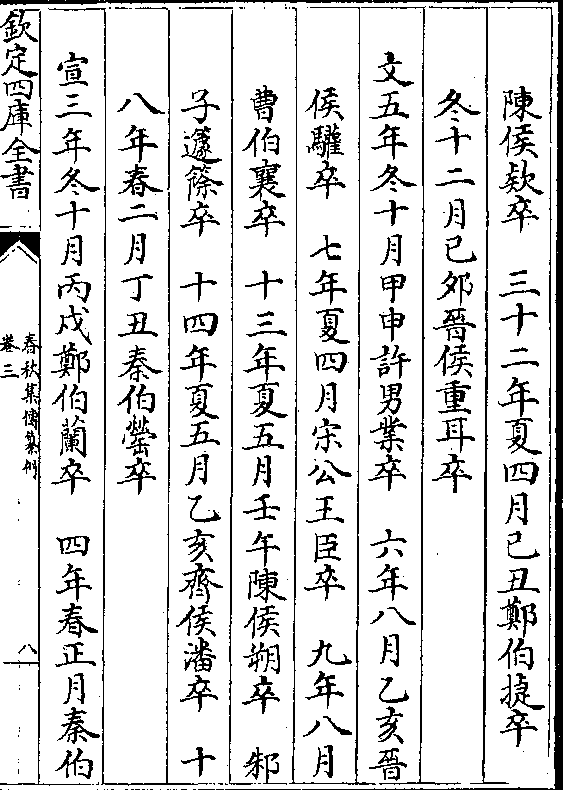 陳侯款卒　三十二年夏四月己丑鄭伯捷卒
冬十二月己夘晉侯重耳卒
文五年冬十月甲申許男業卒　六年八月乙亥晉
侯驩卒　七年夏四月宋公王臣卒　九年八月
曹伯襄卒　十三年夏五月壬午陳侯朔卒　邾
子蘧篨卒　十四年夏五月乙亥齊侯潘卒　十
八年春二月丁丑秦伯罃卒
宣三年冬十月丙戌鄭伯蘭卒　四年春正月秦伯
欽定四庫全書
春秋集傳纂例
卷三
八